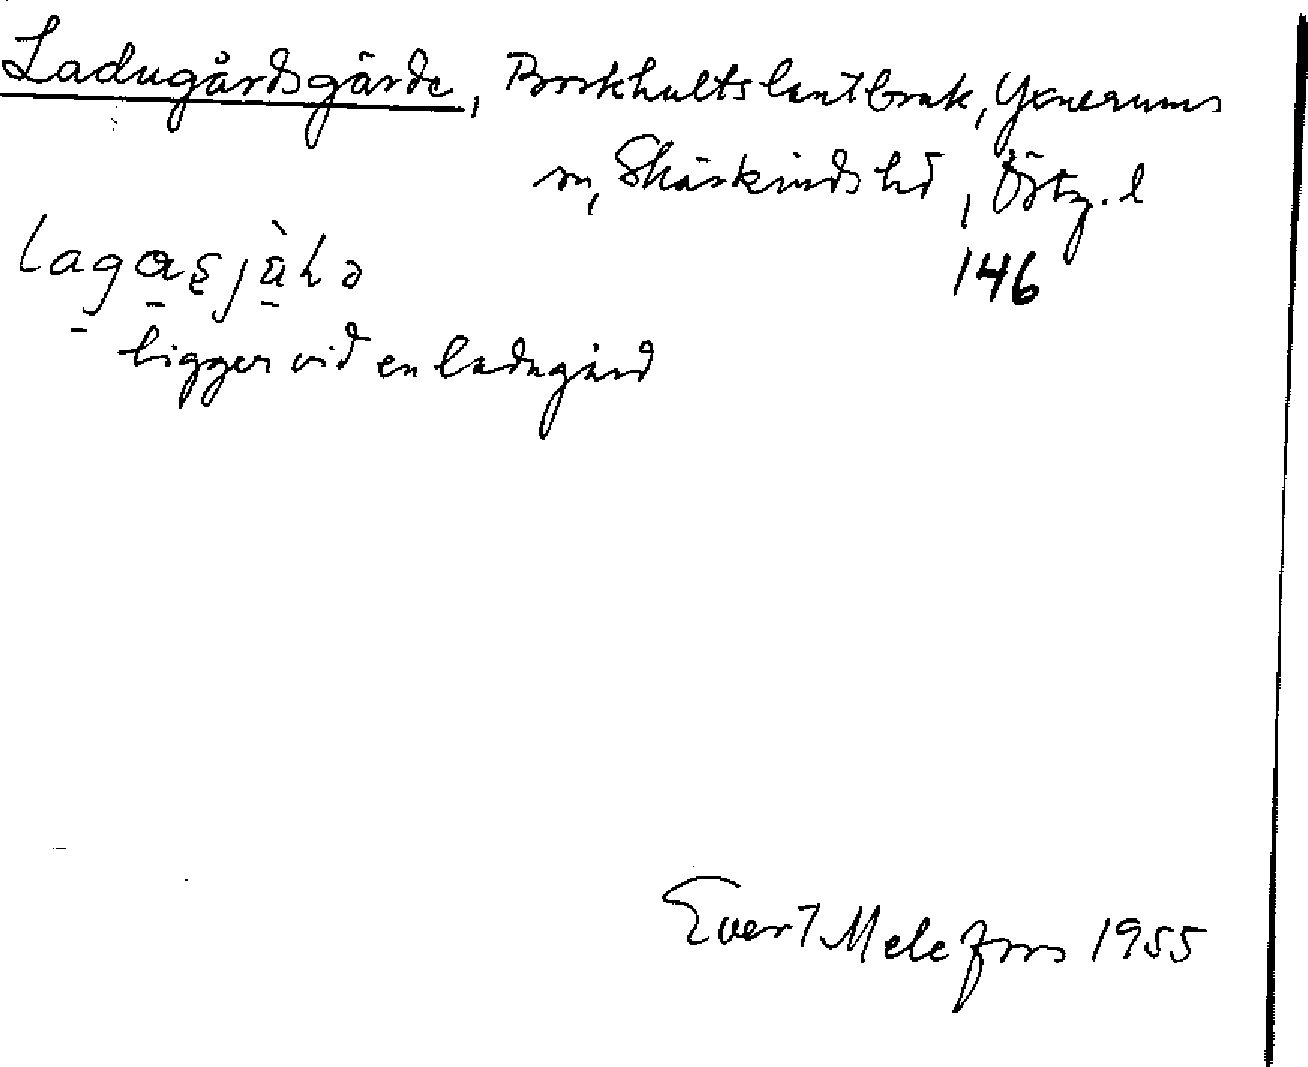 Ladugårdsgärde, Borkhults lantbruk, Yxnerums
sn, Skärkinds hd, Östg. l
146
ligger vid en ladugård
Evert Melefors 1955